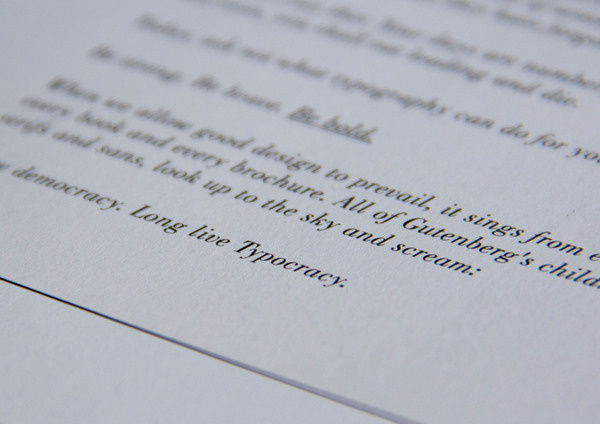 days are numbered
and die.
ask not what typography can do for you
Be strong. Be brave. Be bold.
When we allow good design to prevail, it sings from
every book and every brochure. All of Gutenberg's child
serifs and sans, look up to the sky and scream:
democracy. Long live Typocracy.